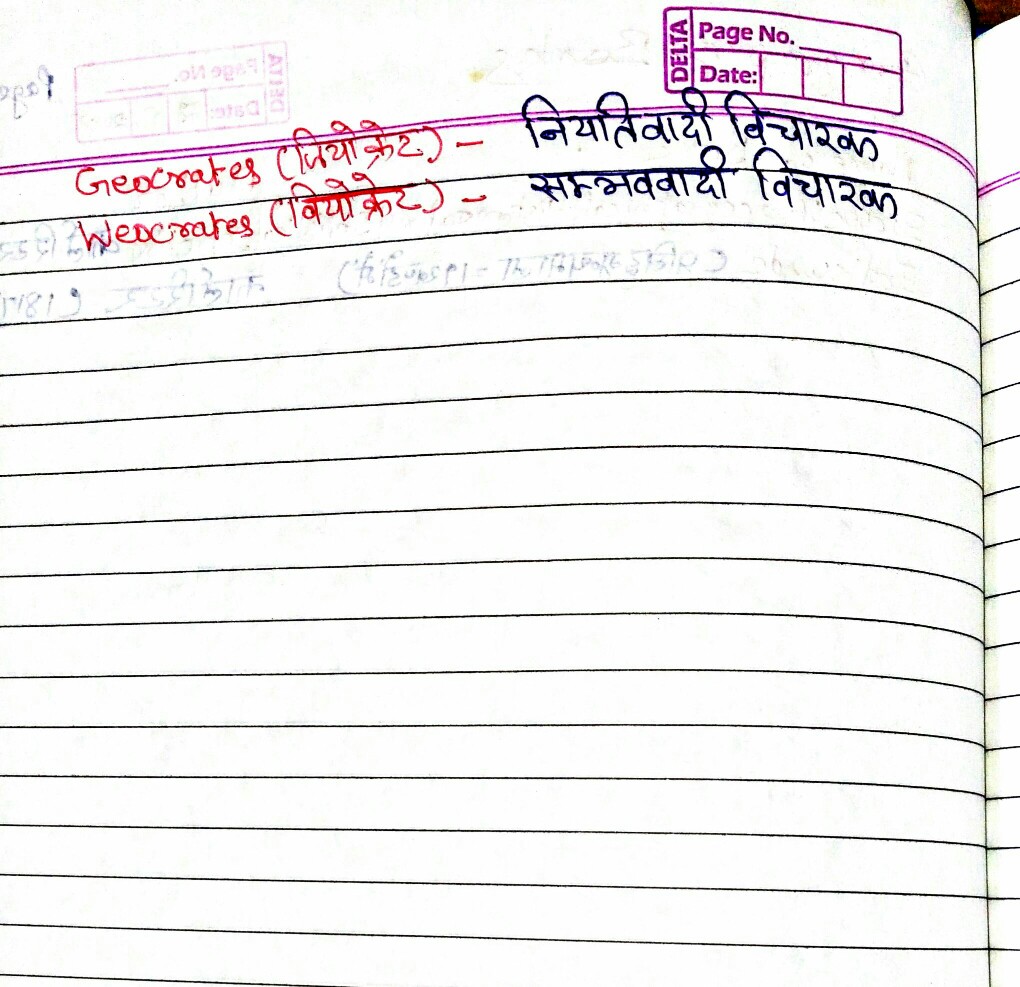 DELTA
Page No.
Date:
Geocrates (जियोक्रेट) – नियतिवादी विचारक
Weocrates (वियोक्रेट) – सम्भववादी विचारक